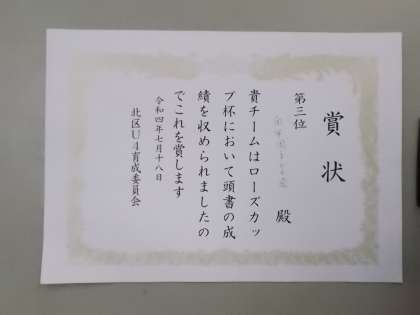 賞状
第三位
殿
貴チームはローズカッ
プ杯において頭書の成
績を収められましたの
でこれを賞します
令和四年七月十八日
北区U4育成委員会